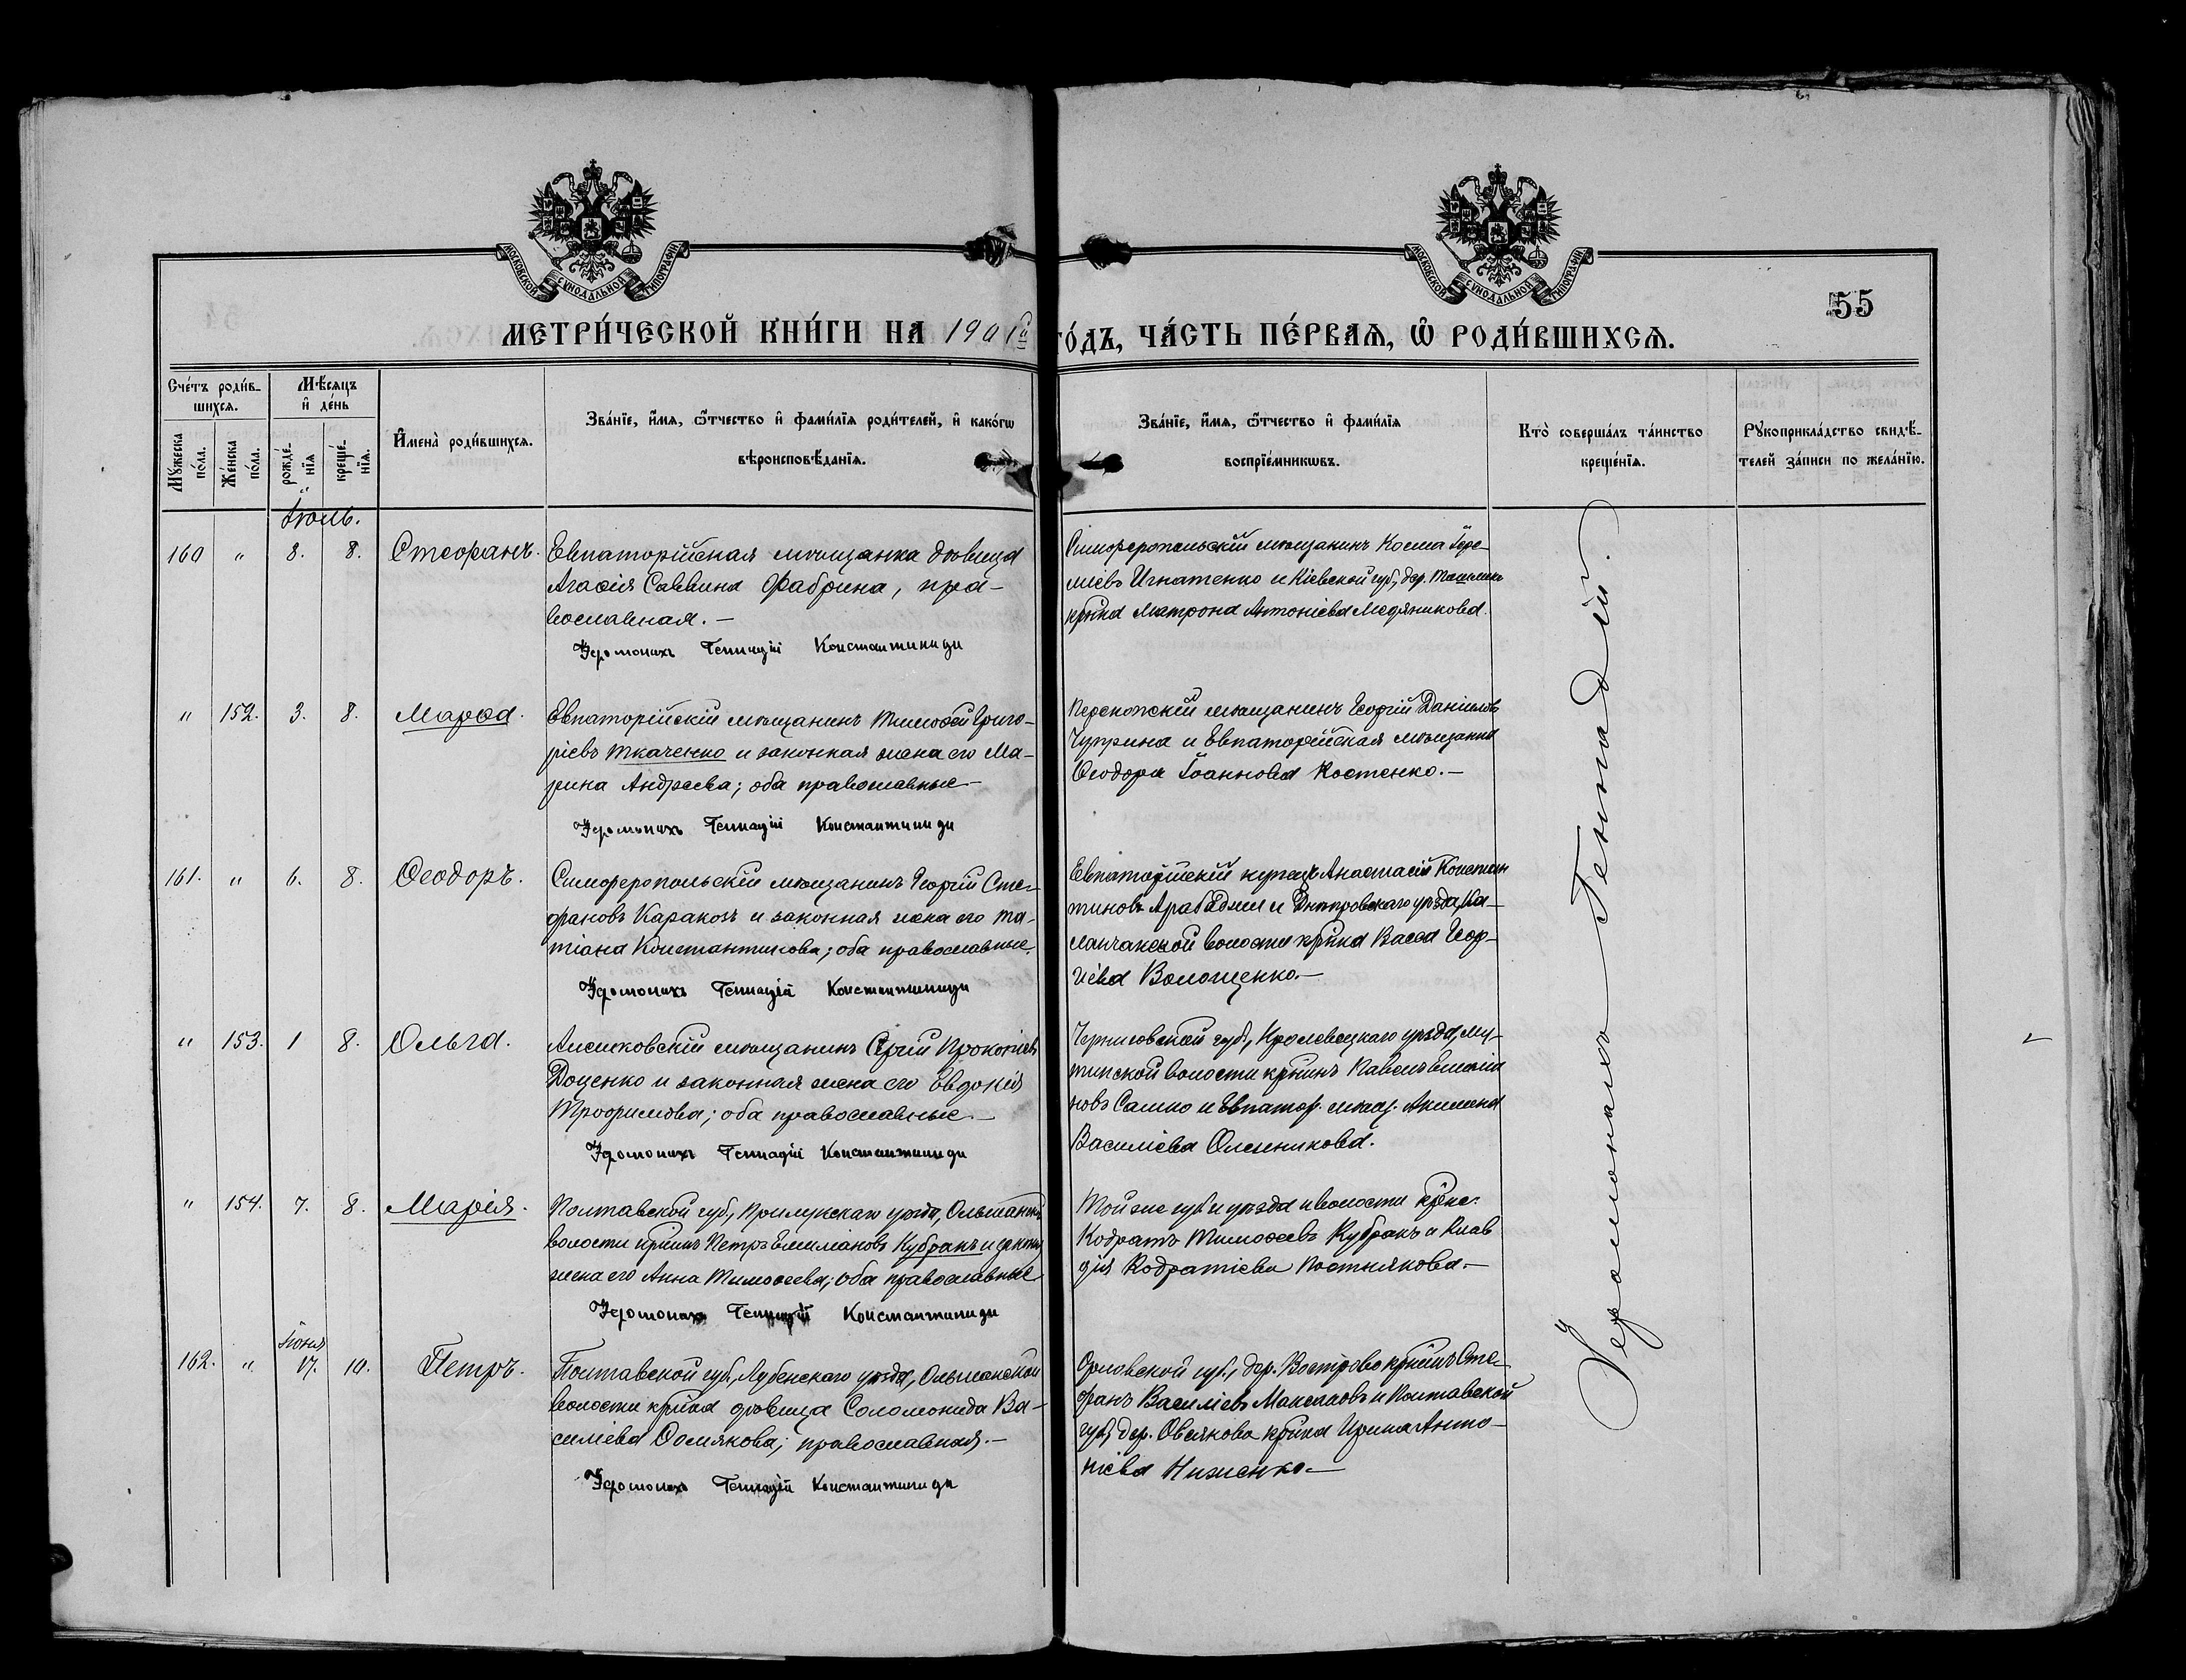 МОСКОВСКОЙ СѴНОДАЛЬНОЙ ТИПОГРАФІИ
МОСКОВСКОЙ СѴНОДАЛЬНОЙ ТИПОГРАФІИ
55
МЕТРИ́ЧЕСКОЙ КНИ́ГИ НА 1901й ГО́ДЪ, ЧА́СТЬ ПЕ́РВАѦ, Ѡ РОДИ́ВШИХСѦ.
Сче́тъ роди́в-
шихсѧ.
Мꙋ́жеска
по́ла.
Же́нска
по́ла.
Мѣ́сѧцъ
и҆ де́нь
рожде́-
нїѧ
креще́-
нїѧ.
И҆мена̀ роди́вшихсѧ.
Зва́нїе, и҆́мѧ, ѻ҆́тчество и҆ фами́лїѧ роди́телей, и҆ како́гѡ
вѣроисповѣ́данїѧ.
Зва́нїе, и҆́мѧ, ѻ҆́тчество и҆ фами́лїѧ
воспрїе́мникѡвъ.
Кто̀ соверша́лъ та́инство
креще́нїѧ.
Рꙋкоприкла́дство свидѣ́-
телей за́писи по жела́нїю.
Іюль.
160 " 8. 8. Стефанъ.
Евпаторійская мѣщанка дѣвица
Агафія Саввина Фабрина, пра-
вославная. —
Іеромонахъ Геннадій Константиниди
Симферопольскій мѣщанинъ Косма Іере-
міевъ Игнатенко и Кіевской губ., дер. Ташлыкъ
крѣнка Матрона Антоніева Медяникова.
" 152. 3. 8. Марѳа.
Евпаторійскій мѣщанинъ Тимоѳей Григо-
ріевъ Ткаченко и законная жена его Ма-
рина Андреева; оба православные —
Іеромонахъ Геннадій Константиниди
Перекопскій мѣщанинъ Георгій Даніиловъ
Чуприна и Евпаторійская мѣщанка
Ѳеодора Іоаннова Костенко. —
161. " 6. 8. Ѳеодоръ.
Симферопольскій мѣщанинъ Георгій Сте-
фановъ Каракозъ и законная жена его Та-
тіана Константинова; оба православные.
Іеромонахъ Геннадій Константиниди
Евпаторійскій купецъ Анастасій Констан
тиновъ Арабаджи и Днѣпровскаго уѣзда, Ка-
ланчакской волости крѣнка Васса Геор-
гіева Волощенко. —
" 153. 1 8. Ольга.
Алешковскій мѣщанинъ Сергій Прокопіевъ
Доценко и законная жена его Евдокія
Трофимова; оба православные. —
Іеромонахъ Геннадій Константиниди
Черниговской губ., Кролевецкаго уѣзда, Му-
тинской волости крѣнинъ Павелъ
новъ Сашко и Евпатор. мѣщ. Акилина
Василіева Олейникова.
" 154. 7. 8. Марія.
Полтавской губ., Прилукскаго уѣзда, Ольшанской
волости крѣнинъ Петръ Кубракъ и законная
жена его Анна Тимоѳеева; оба православные
Іеромонахъ Геннадій Константиниди
Той же губ. и уѣзда и волости крѣне:
Кодратъ Тимоѳеевъ Кубракъ и Клав
дія Кодратіева Постнякова. —
Іюня
162. " 17. 10. Петръ.
Полтавской губ., Лубенскаго уѣзда, Ольшанской
волости крѣнка дѣвица Соломонида Ва-
силіева Сомякова; православная. —
Іеромонахъ Геннадій Константиниди
Орловской губ., дер. Вострово крѣнинъ Сте-
фанъ Василіевъ и Полтавской
губ. дер. Овсякова крѣнка Ирина Анто-
ніева Ниженко —
Іеромонахъ Геннадій.